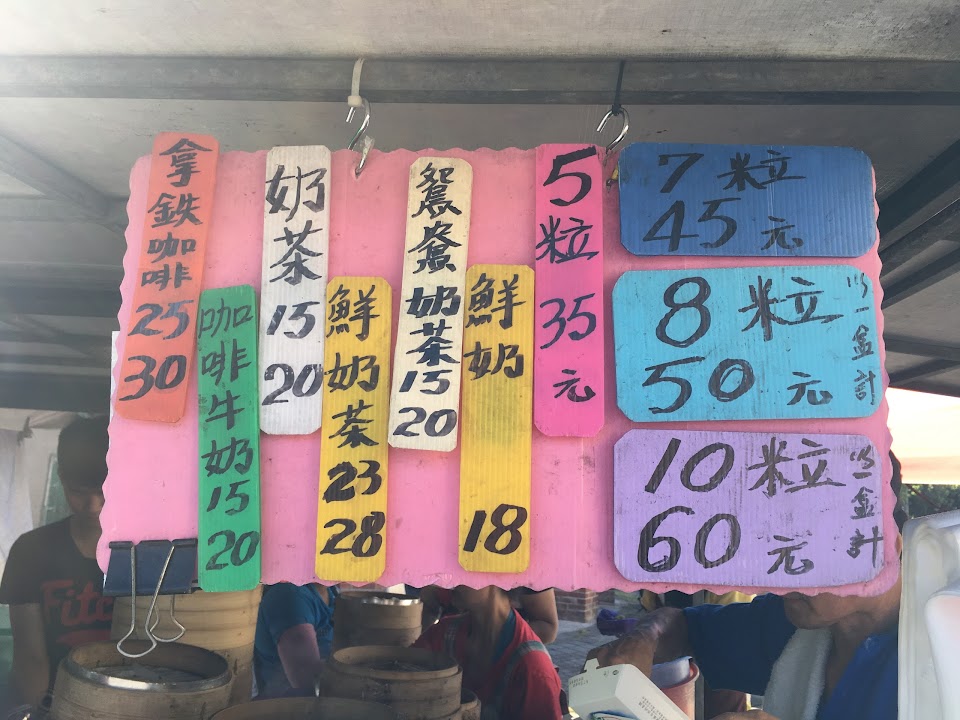 拿鉄咖啡2530
咖啡牛奶1520
奶茶1520
鮮奶茶2328
鴛鴦奶茶1520
鮮奶18
5粒35元
7粒
45元
8粒
50元
以一盒計
10粒
60元
以一盒計